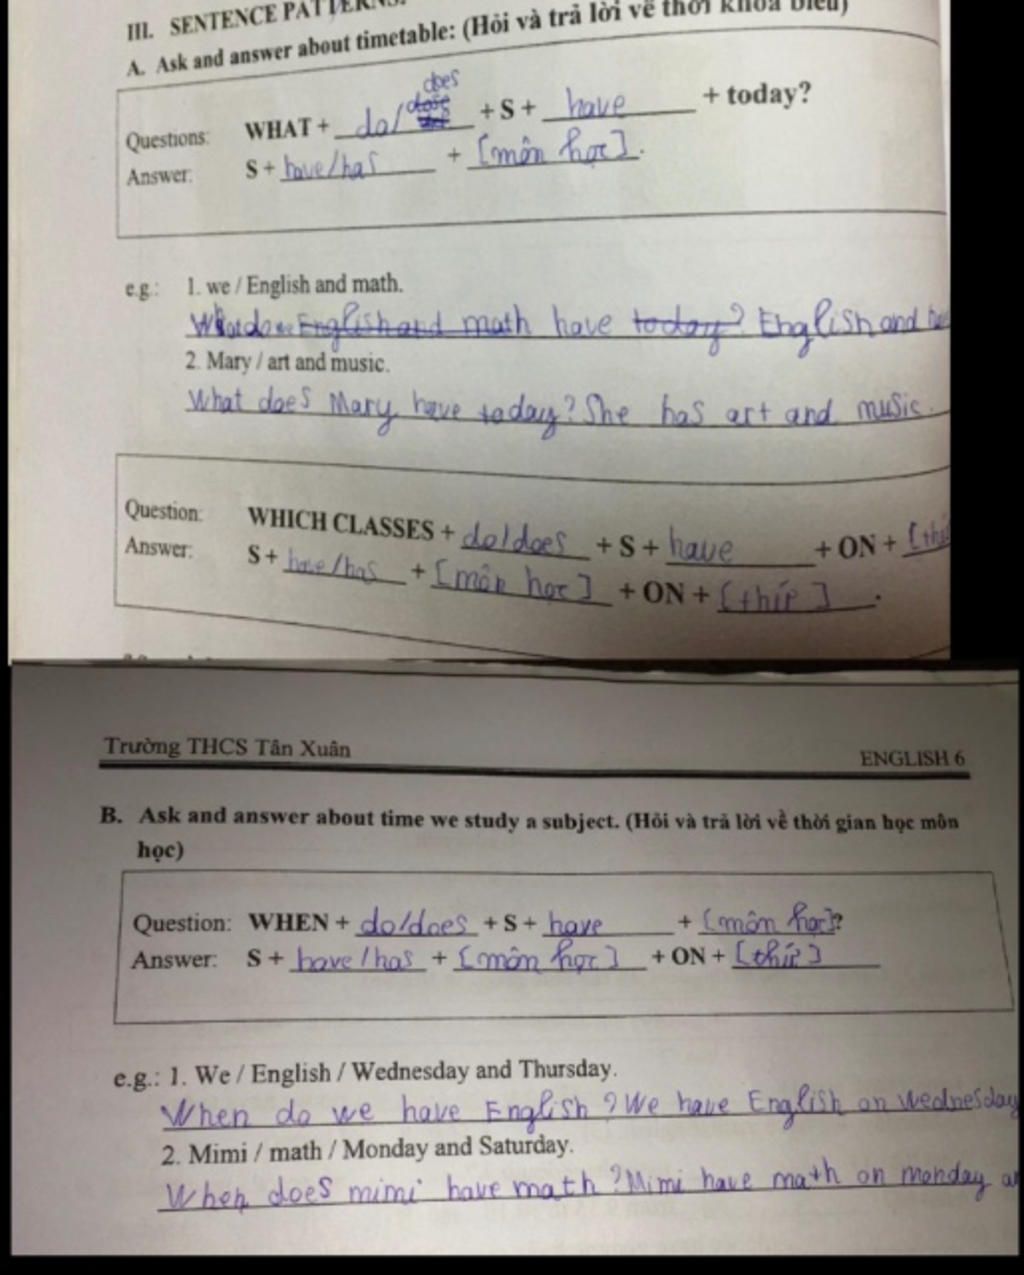 III. SENTENCE PATTERNS:
A. Ask and answer about timetable: (Hỏi và trả lời về thời khoá biểu)
Questions: WHAT + do/ does + S + have + today?
Answer: S + have/has + [môn học].
e.g.: 1. we / English and math.
What do we English and math have today? English and
2. Mary / art and music.
What does Mary have today? She has art and music.
Question: WHICH CLASSES + do/does + S + have + ON + [thứ
Answer: S + have/has + [môn học] + ON + [thứ].
Trường THCS Tân Xuân
ENGLISH 6
B. Ask and answer about time we study a subject. (Hỏi và trả lời về thời gian học môn
học)
Question: WHEN + do/does + S + have + [môn học]?
Answer: S + have/has + [môn học] + ON + [thứ]
e.g.: 1. We / English / Wednesday and Thursday.
When do we have English? We have English on Wednesday
2. Mimi / math / Monday and Saturday.
When does mimi have math? Mimi have math on monday